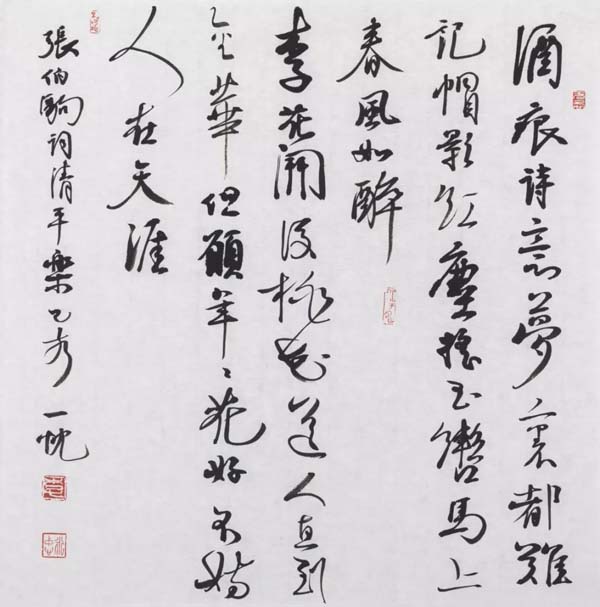 酒痕詩意夢裏都難
記帽影紅塵搖玉轡馬上
春風如醉
李花開後桃花送人直到
京華但願年々花好不妨
人在天涯
張伯駒詞清平樂